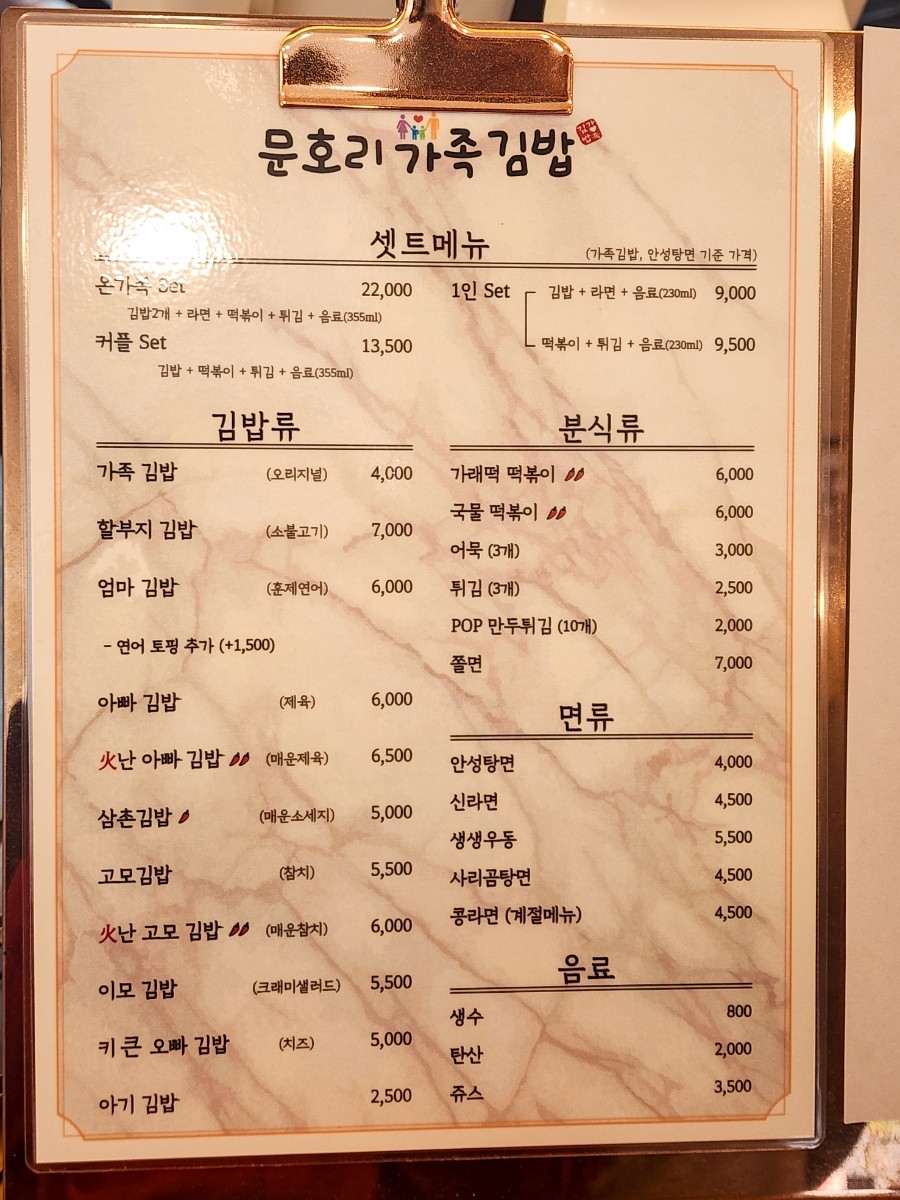 문호리 가족김밥
셋트메뉴
(가족김밥, 안성탕면 기준 가격)
온가족 Set 22,000
김밥2개 + 라면 + 떡볶이 + 튀김 + 음료(355ml)
커플 Set 13,500
김밥 + 떡볶이 + 튀김 + 음료(355ml)
1인 Set 김밥 + 라면 + 음료(230ml) 9,000
떡볶이 + 튀김 + 음료(230ml) 9,500
김밥류
가족 김밥 (오리지널) 4,000
할부지 김밥 (소불고기) 7,000
엄마 김밥 (훈제연어) 6,000
- 연어 토핑 추가 (+1,500)
아빠 김밥 (제육) 6,000
火난 아빠 김밥 (매운제육) 6,500
삼촌김밥 (매운소세지) 5,000
고모김밥 (참치) 5,500
火난 고모 김밥 (매운참치) 6,000
이모 김밥 (크래미샐러드) 5,500
키 큰 오빠 김밥 (치즈) 5,000
아기 김밥 2,500
분식류
가래떡 떡볶이 6,000
국물 떡볶이 6,000
어묵 (3개) 3,000
튀김 (3개) 2,500
POP 만두튀김 (10개) 2,000
쫄면 7,000
면류
안성탕면 4,000
신라면 4,500
생생우동 5,500
사리곰탕면 4,500
콩라면 (계절메뉴) 4,500
음료
생수 800
탄산 2,000
쥬스 3,500